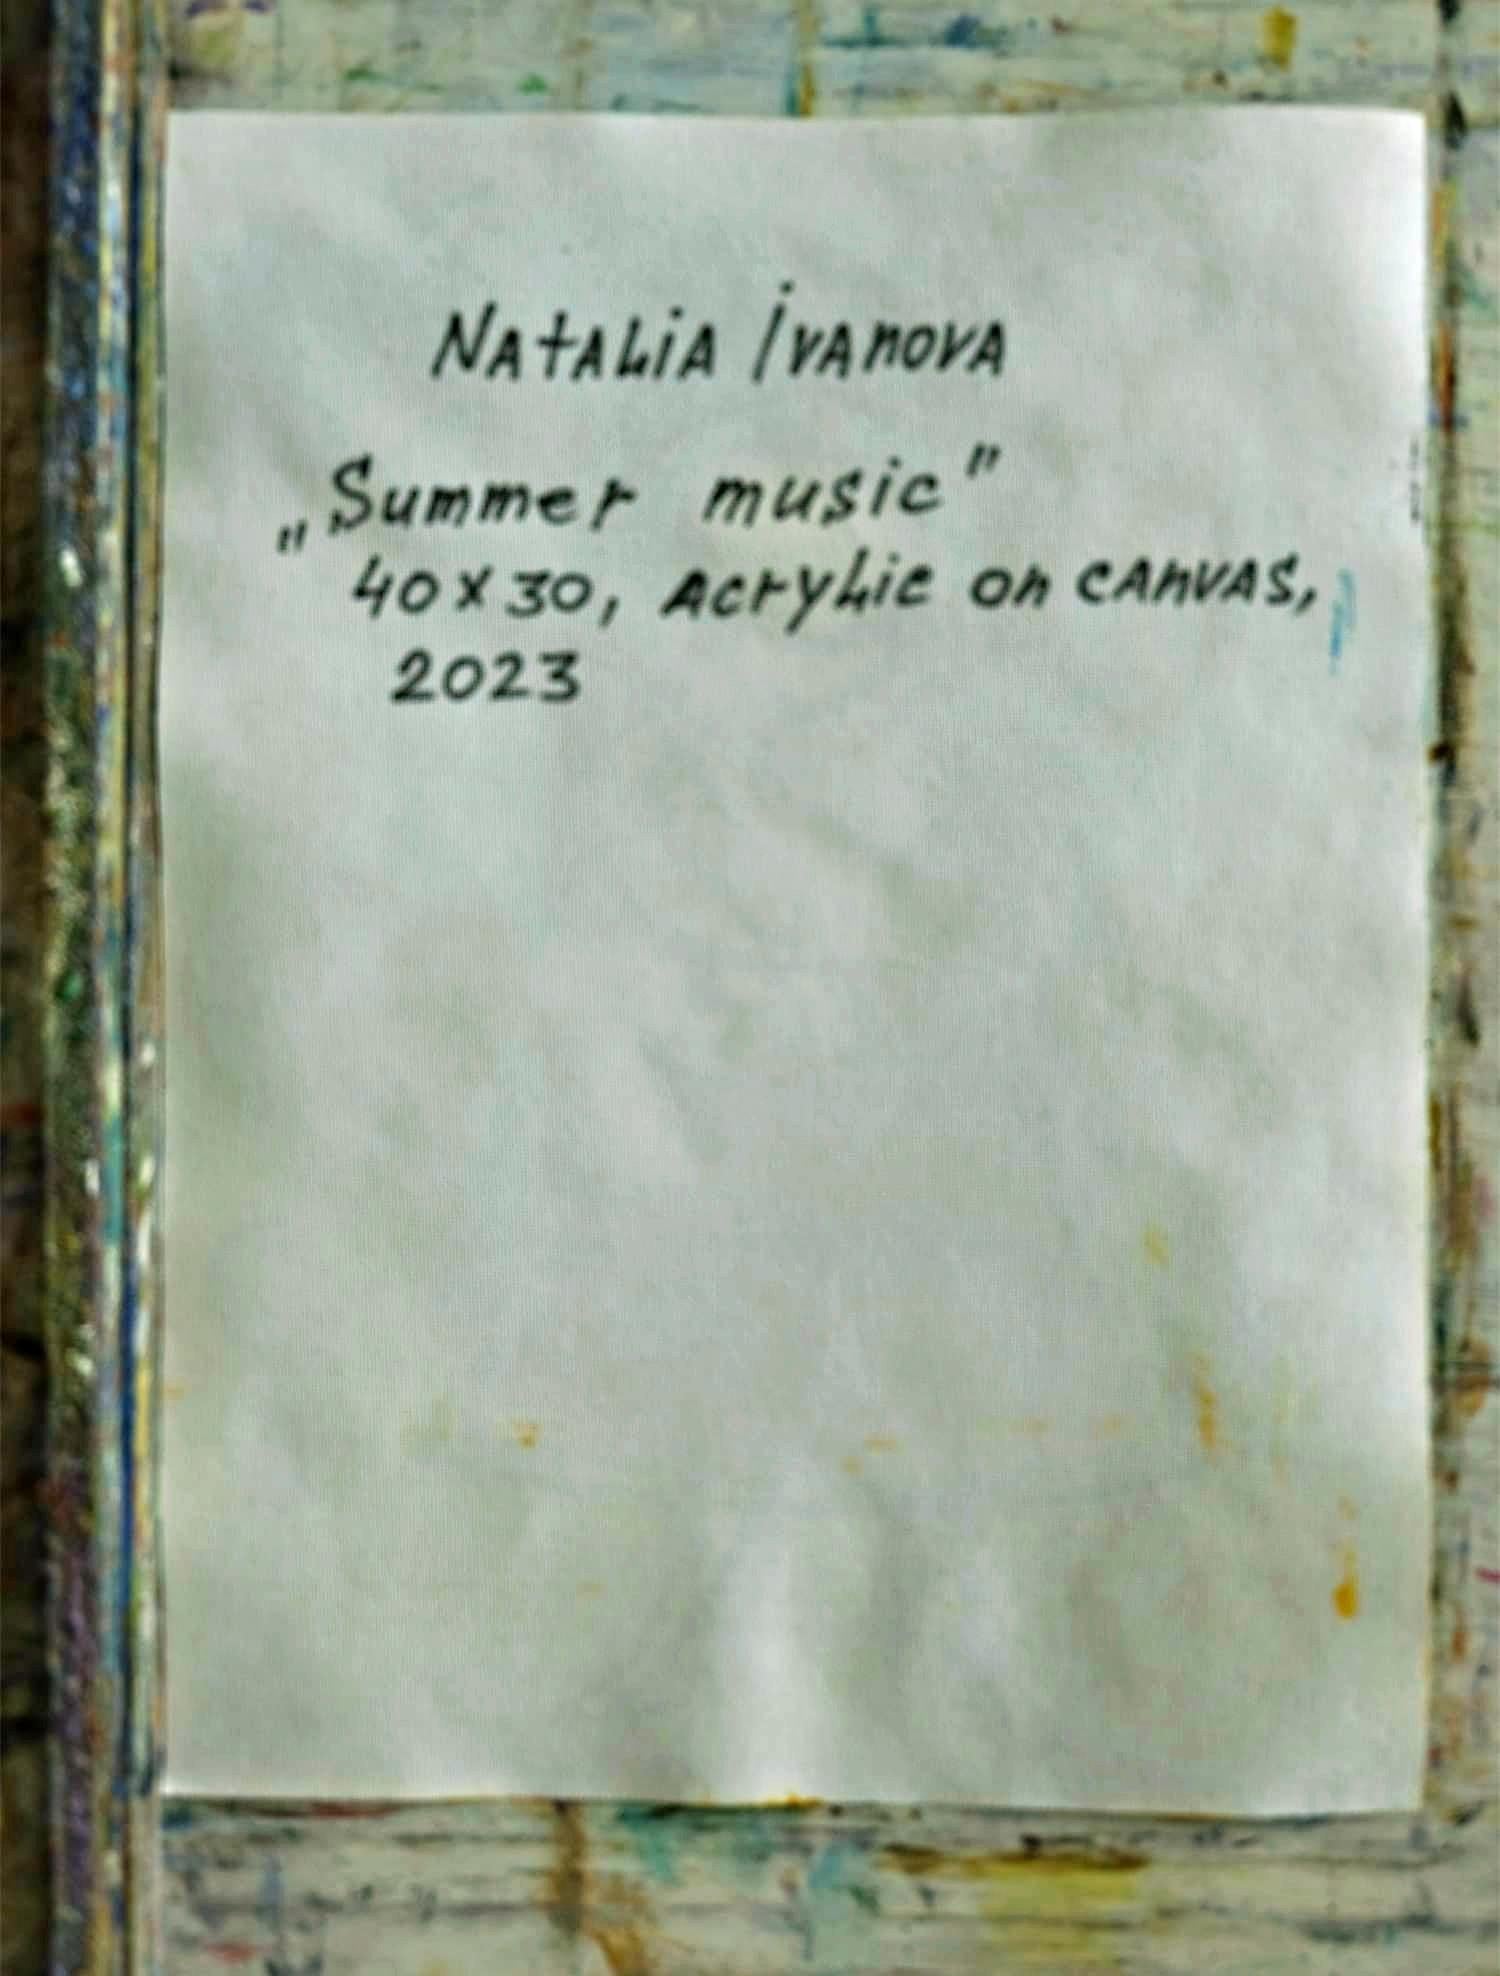 Natalia Ivanova
„Summer music"
40x30, acrylic on canvas,
2023